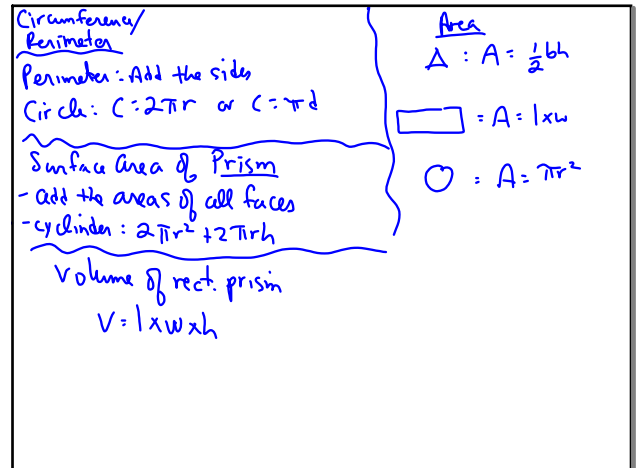 Circumference/
Perimeter
Perimeter: Add the sides
Circle: C = 2πr or C = πd
Surface area of Prism
- add the areas of all faces
- cyclinder: 2πr² + 2πrh
Volume of rect. prism
V = l x w x h
Area
Δ : A = ½bh
= A = l x w
= A = πr²